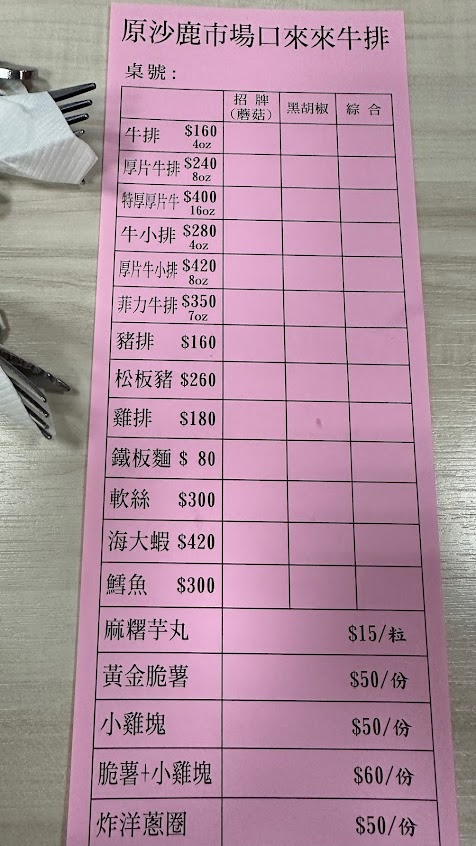 原沙鹿市場口來來牛排
桌號:
招牌(蘑菇) 黑胡椒 綜合
牛排 $160 4oz
厚片牛排 $240 8oz
特厚厚片牛 $400 16oz
牛小排 $280 4oz
厚片牛小排 $420 8oz
菲力牛排 $350 7oz
豬排 $160
松板豬 $260
雞排 $180
鐵板麵 $ 80
軟絲 $300
海大蝦 $420
鱈魚 $300
麻糬芋丸 $15/粒
黃金脆薯 $50/份
小雞塊 $50/份
脆薯+小雞塊 $60/份
炸洋蔥圈 $50/份